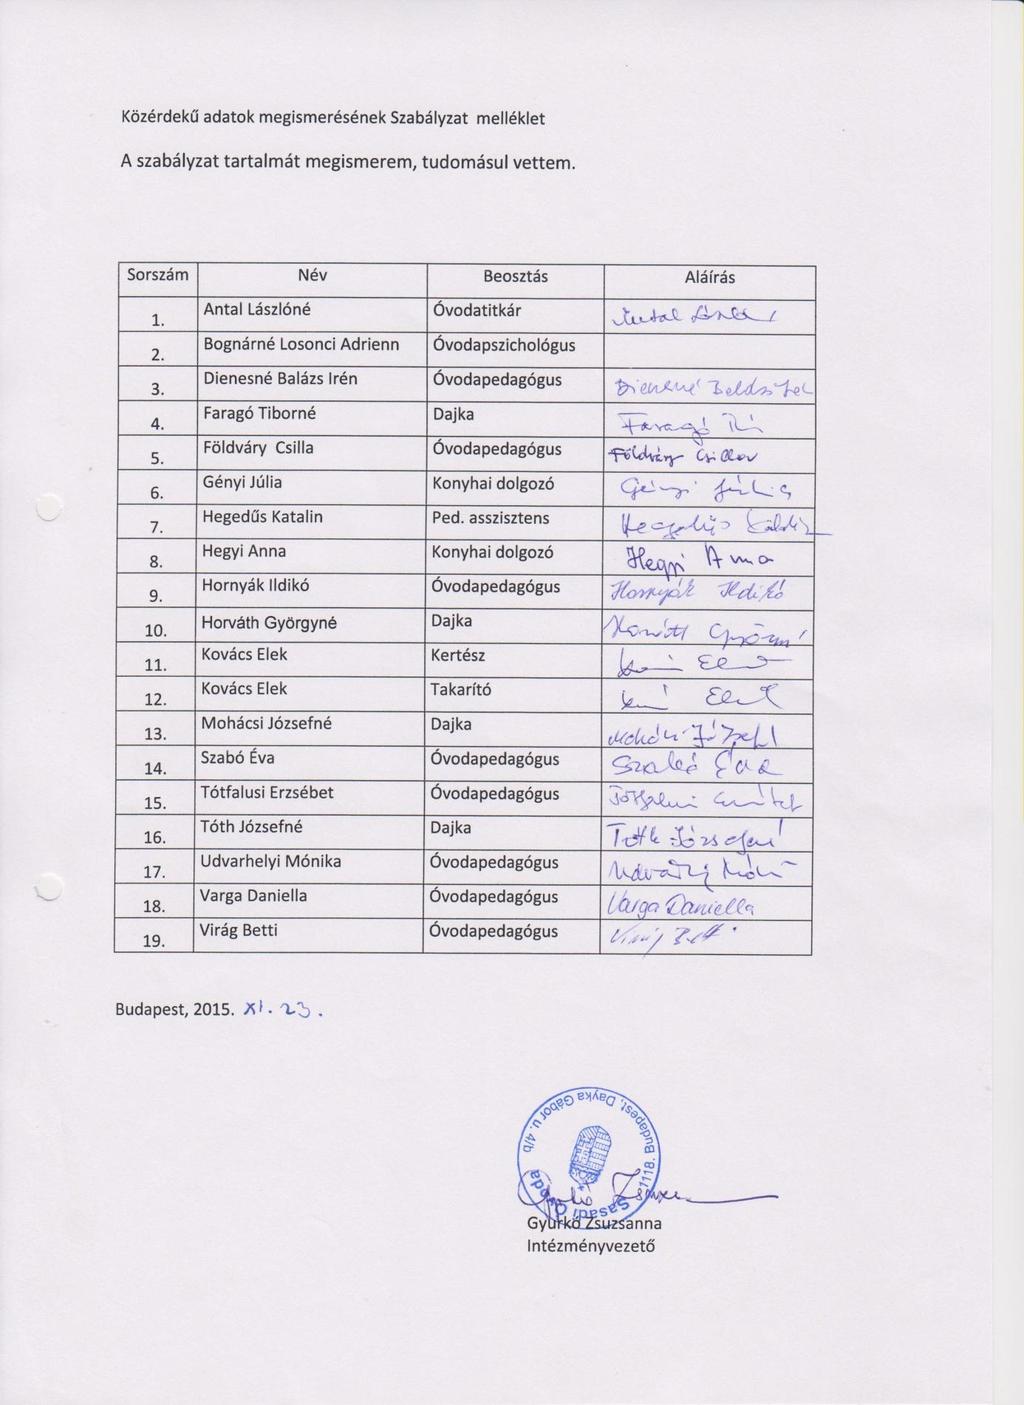 Közérdekű adatok megismerésének Szabályzat melléklet
A szabályzat tartalmát megismerem, tudomásul vettem.
Sorszám Név Beosztás Aláírás
1. Antal Lászlóné Óvodatitkár
2. Bognárné Losonci Adrienn Óvodapszichológus
3. Dienesné Balázs Irén Óvodapedagógus Dienesné
4. Faragó Tiborné Dajka Faragó
5. Földváry Csilla Óvodapedagógus Földváry Csilla
6. Gényi Júlia Konyhai dolgozó Gényi Júlia
7. Hegedűs Katalin Ped. asszisztens Hegedűs
8. Hegyi Anna Konyhai dolgozó Hegyi Anna
9. Hornyák Ildikó Óvodapedagógus Hornyák Ildikó
10. Horváth Györgyné Dajka
11. Kovács Elek Kertész
12. Kovács Elek Takarító
13. Mohácsi Józsefné Dajka
14. Szabó Éva Óvodapedagógus Szabó Éva
15. Tótfalusi Erzsébet Óvodapedagógus
16. Tóth Józsefné Dajka Tóth Józsefné
17. Udvarhelyi Mónika Óvodapedagógus
18. Varga Daniella Óvodapedagógus Varga Daniella
19. Virág Betti Óvodapedagógus
Budapest, 2015. XI. 23.
Sasadi Óvoda
1118. Budapest, Dayka Gábor u. 4/b
Gyurkó Zsuzsanna
Intézményvezető